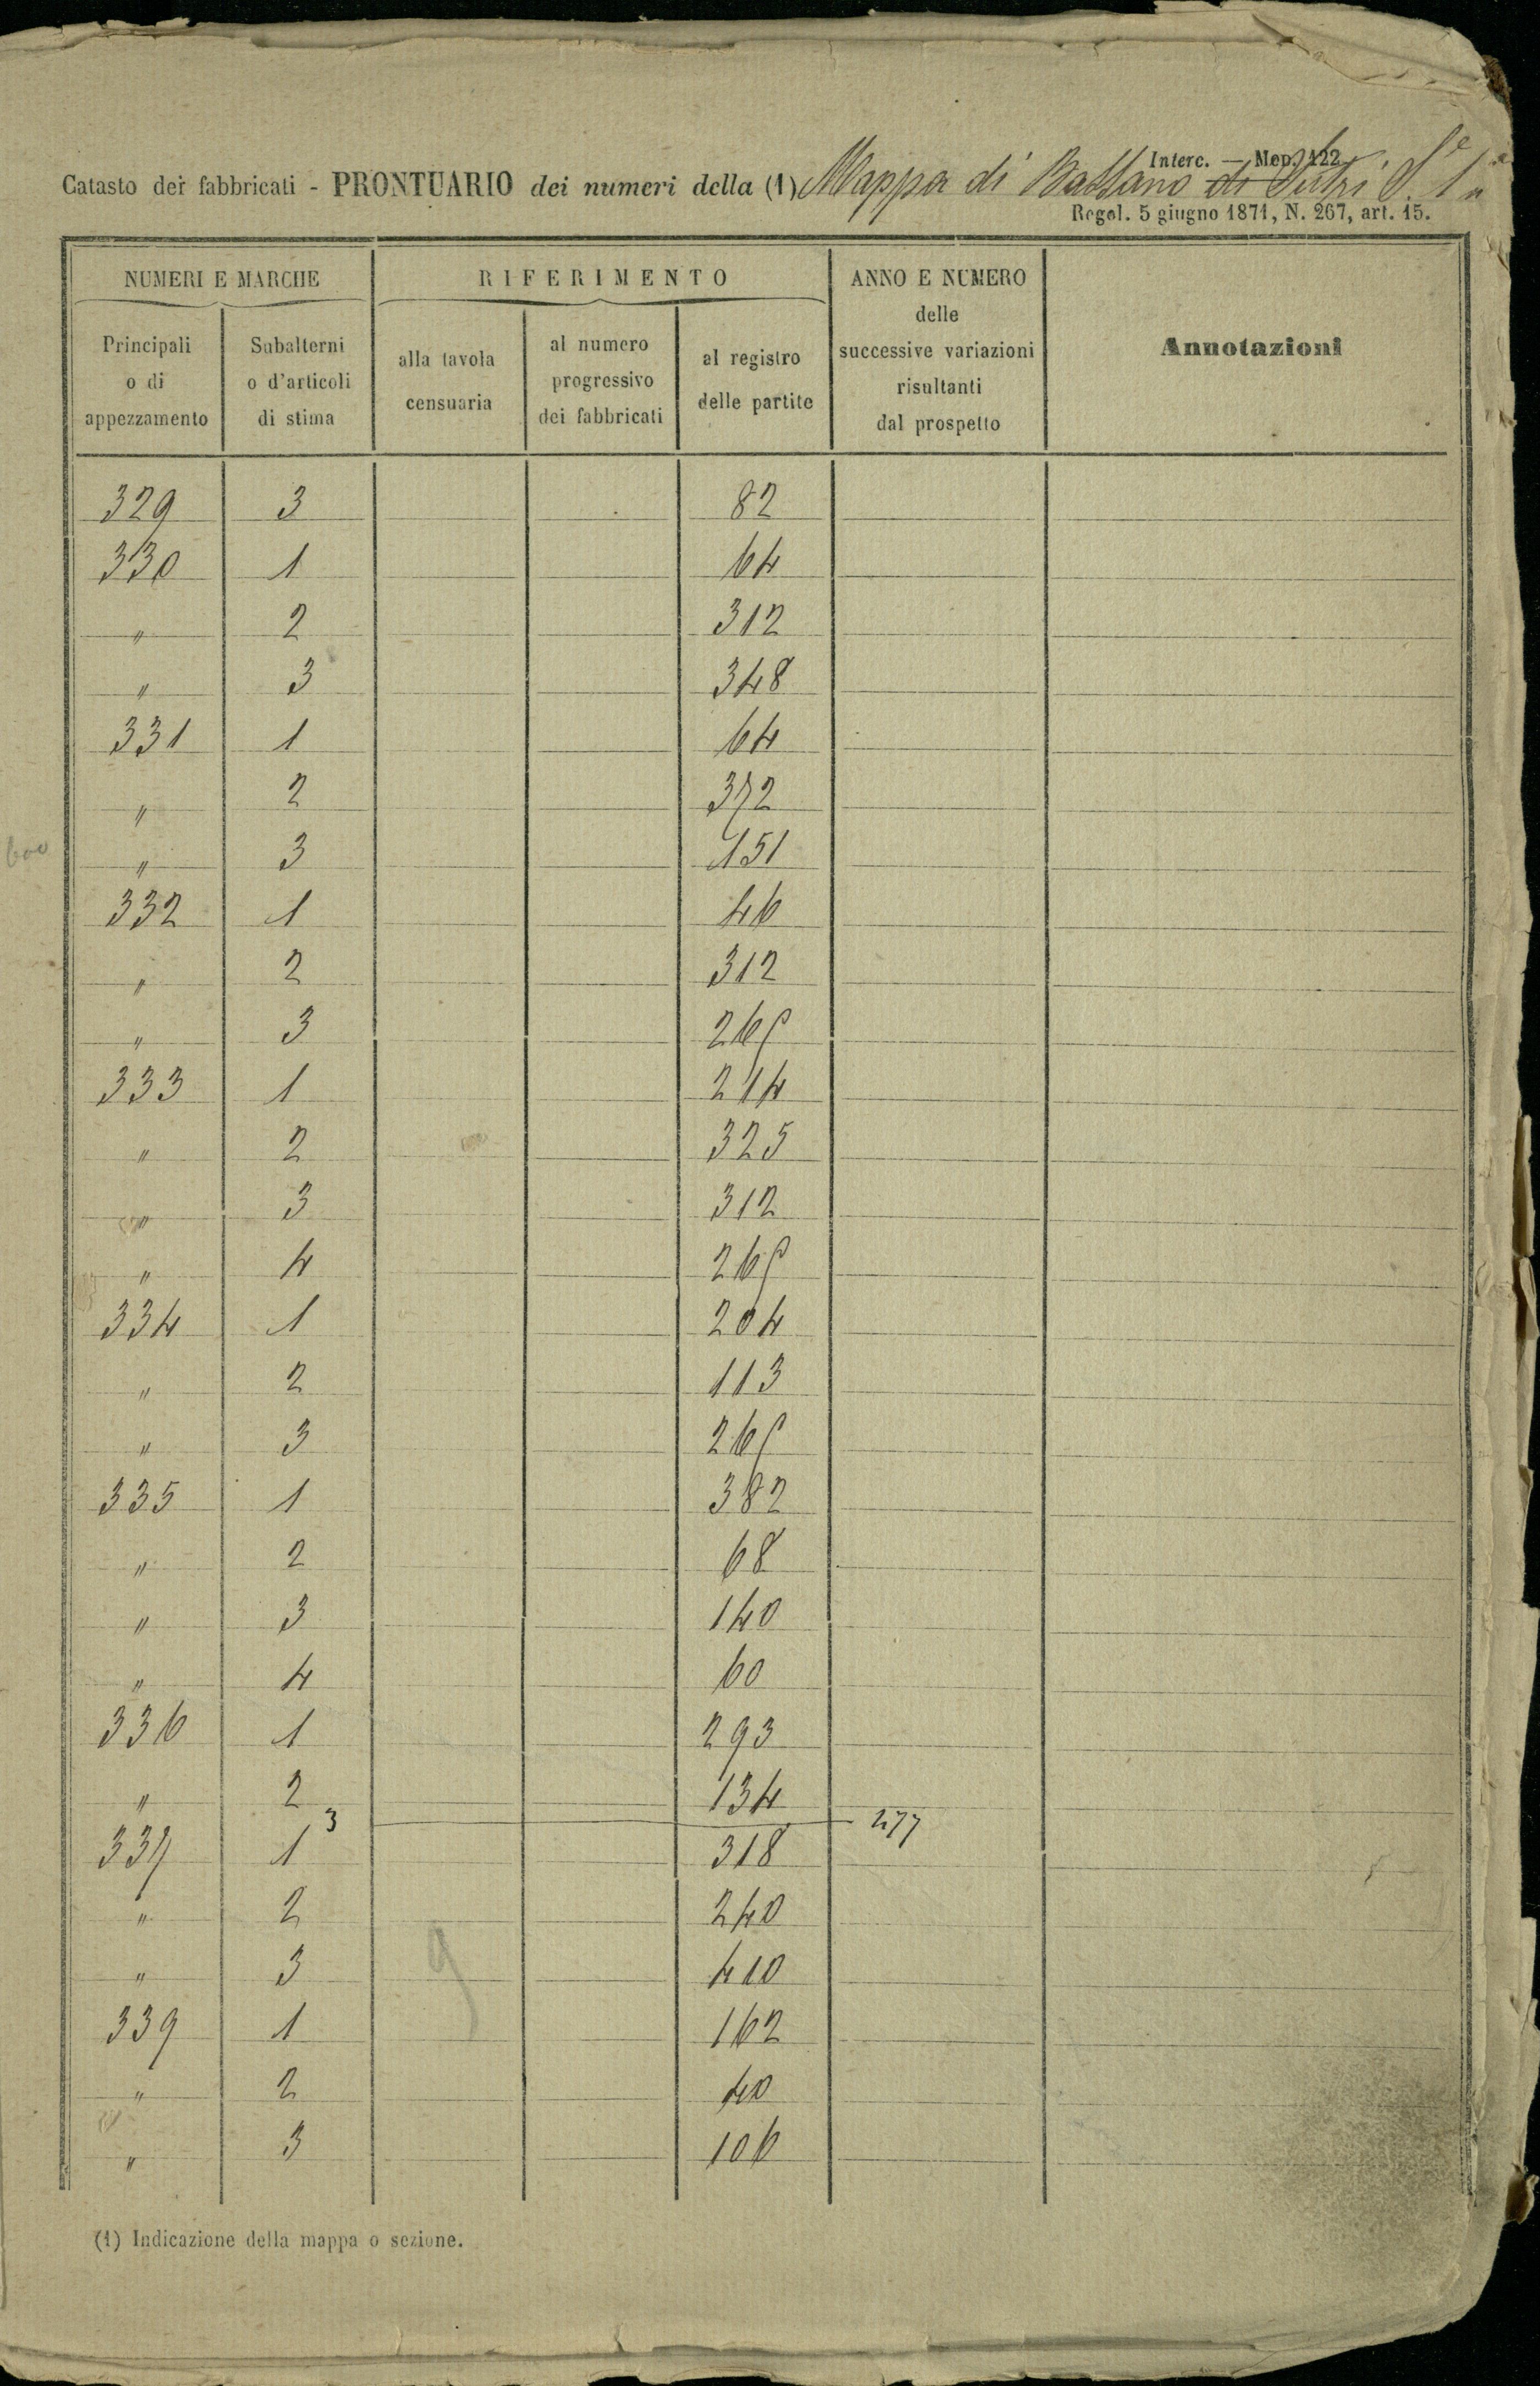 Interc. — Mop. 122
Catasto dei fabbricati - PRONTUARIO dei numeri della (1) Mappa di Bassano di Sutri S.e 1a
Regol. 5 giugno 1871, N. 267, art. 15.
NUMERI E MARCHE RIFERIMENTO ANNO E NUMERO delle successive variazioni risultanti dal prospetto Annotazioni
Principali o di appezzamento Subalterni o d'articoli di stima alla tavola censuaria al numero progressivo dei fabbricati al registro delle partite
329 3 82
330 1 64
" 2 312
" 3 348
331 1 64
" 2 372
600 " 3 151
332 1 46
" 2 312
" 3 267
333 1 214
" 2 325
" 3 312
" 4 267
334 1 204
" 2 113
" 3 267
335 1 382
" 2 68
" 3 140
" 4 60
336 1 293
" 2 134
3 277
337 1 318
" 2 240
" 3 410
9
339 1 162
" 2 40
" 3 106
(1) Indicazione della mappa o sezione.